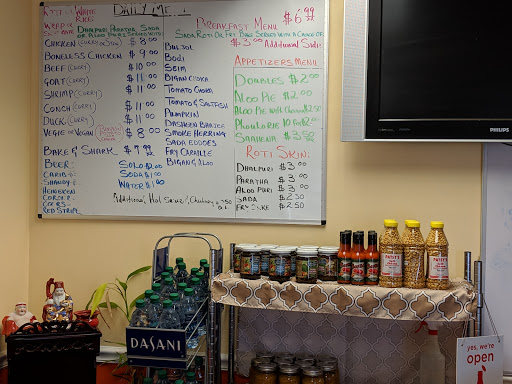 DAILY MENU
WHITE
RICE
DHALPURI PARATHA SADA
OR ALOO PIES SERVED WITH
CHICKEN (CURRY OR STEW) $8.00
BONELESS CHICKEN $9.00
BEEF (CURRY) $10.00
GOAT (CURRY) $11.00
SHRIMP (CURRY) $11.00
CONCH (CURRY) $11.00
DUCK (CURRY) $11.00
VEGIE OR VEGAN $8.00
BAKE & SHARK $9.99
BEER:
CARIB
SHANDY
HEINEKEN
CORONA
COORS
RED STRIPE
SOLO $2.00
SODA $1.00
WATER $1.00
Additional Hot Sauce, Chutney 0.50
BREAKFAST MENU $6.99
SADA ROTI OR FRY BAKE SERVED WITH A CHOICE OF
$3.00 ADDITIONAL SIDES
BAIGAN CHOKA
TOMATO CHOKA
TOMATO & SALTFISH
PUMPKIN
DASHEEN BHAJEE
SMOKE HERRING
SADA EDDOES
FRY CARAILLE
BIGAN & ALOO
BODI
SEIM
APPETIZERS MENU
DOUBLES $2.00
ALOO PIE $2.00
ALOO PIE WITH CHANNA $2.50
PHOULORIE 10 FOR $2.00
SAHEENA $3.50
ROTI SKIN:
DHALPURI $3.00
PARATHA $3.00
ALOO PURI $3.00
SADA $2.50
FRY BAKE $2.50
PHILIPS
DASANI
yes, we're
open